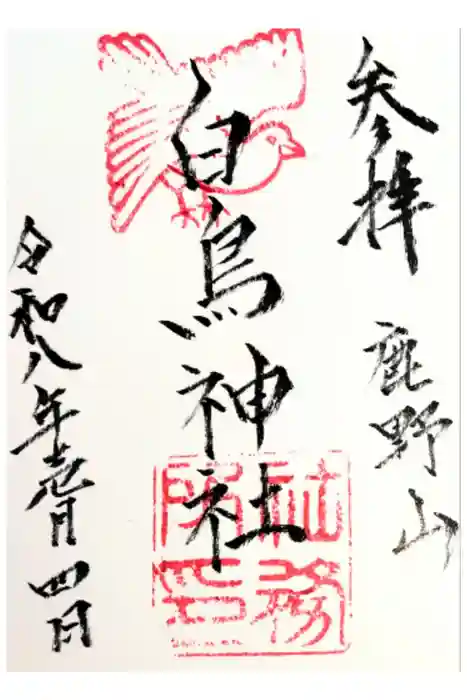 参拝 鹿野山
白鳥神社
社務所印
令和八年壱月四日